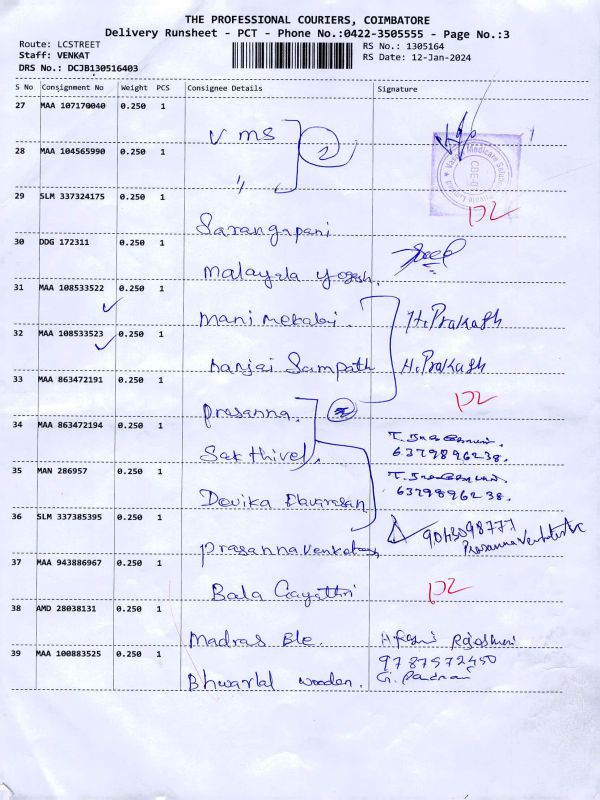 THE PROFESSIONAL COURIERS, COIMBATORE
Delivery Runsheet - PCT - Phone No.:0422-3505555 - Page No.:3
Route: LCSTREET
RS No.: 1305164
Staff: VENKAT
RS Date: 12-Jan-2024
DRS No.: DCJB130516403
S No Consignment No Weight PCS Consignee Details Signature
27 MAA 107170040 0.250 1
V ms
2
28 MAA 104565990 0.250 1
"
29 SLM 337324175 0.250 1
Sarangapani
D2
30 DDG 172311 0.250 1
Malayala Yogesh.
31 MAA 108533522 0.250 1
Mani mekalai. H.Prakash
32 MAA 108533523 0.250 1
Sampath H.Prakash
33 MAA 863472191 0.250 1
Prasanna.
D2
34 MAA 863472194 0.250 1
Sakthivel.
6379896238.
35 MAN 286957 0.250 1
Devika
6379896238.
36 SLM 337385395 0.250 1
9043098777
Prasanna Venkatesh
37 MAA 943886967 0.250 1
Bala Gayathri
D2
38 AMD 28038131 0.250 1
Madras Ble.
39 MAA 100883525 0.250 1
9787572450
Bhwarlal wooden.